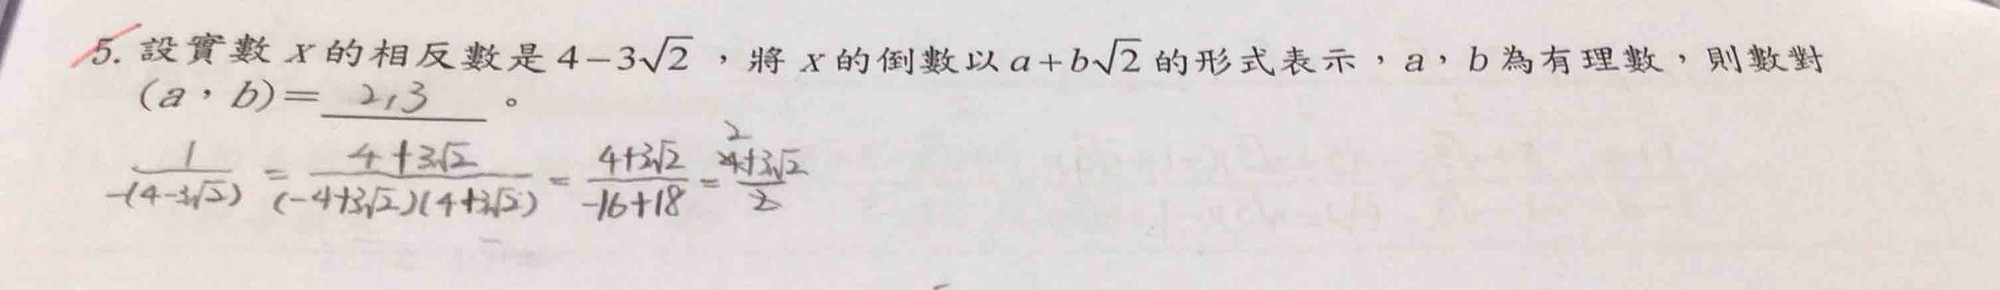 5. 設實數 x 的相反數是 4－3√2 ，將 x 的倒數以 a+b√2 的形式表示，a，b 為有理數，則數對
(a，b)= 2,3 。
1/-(4-3√2) = 4+3√2/(-4+3√2)(4+3√2) = 4+3√2/-16+18 = 2 4+3√2/2